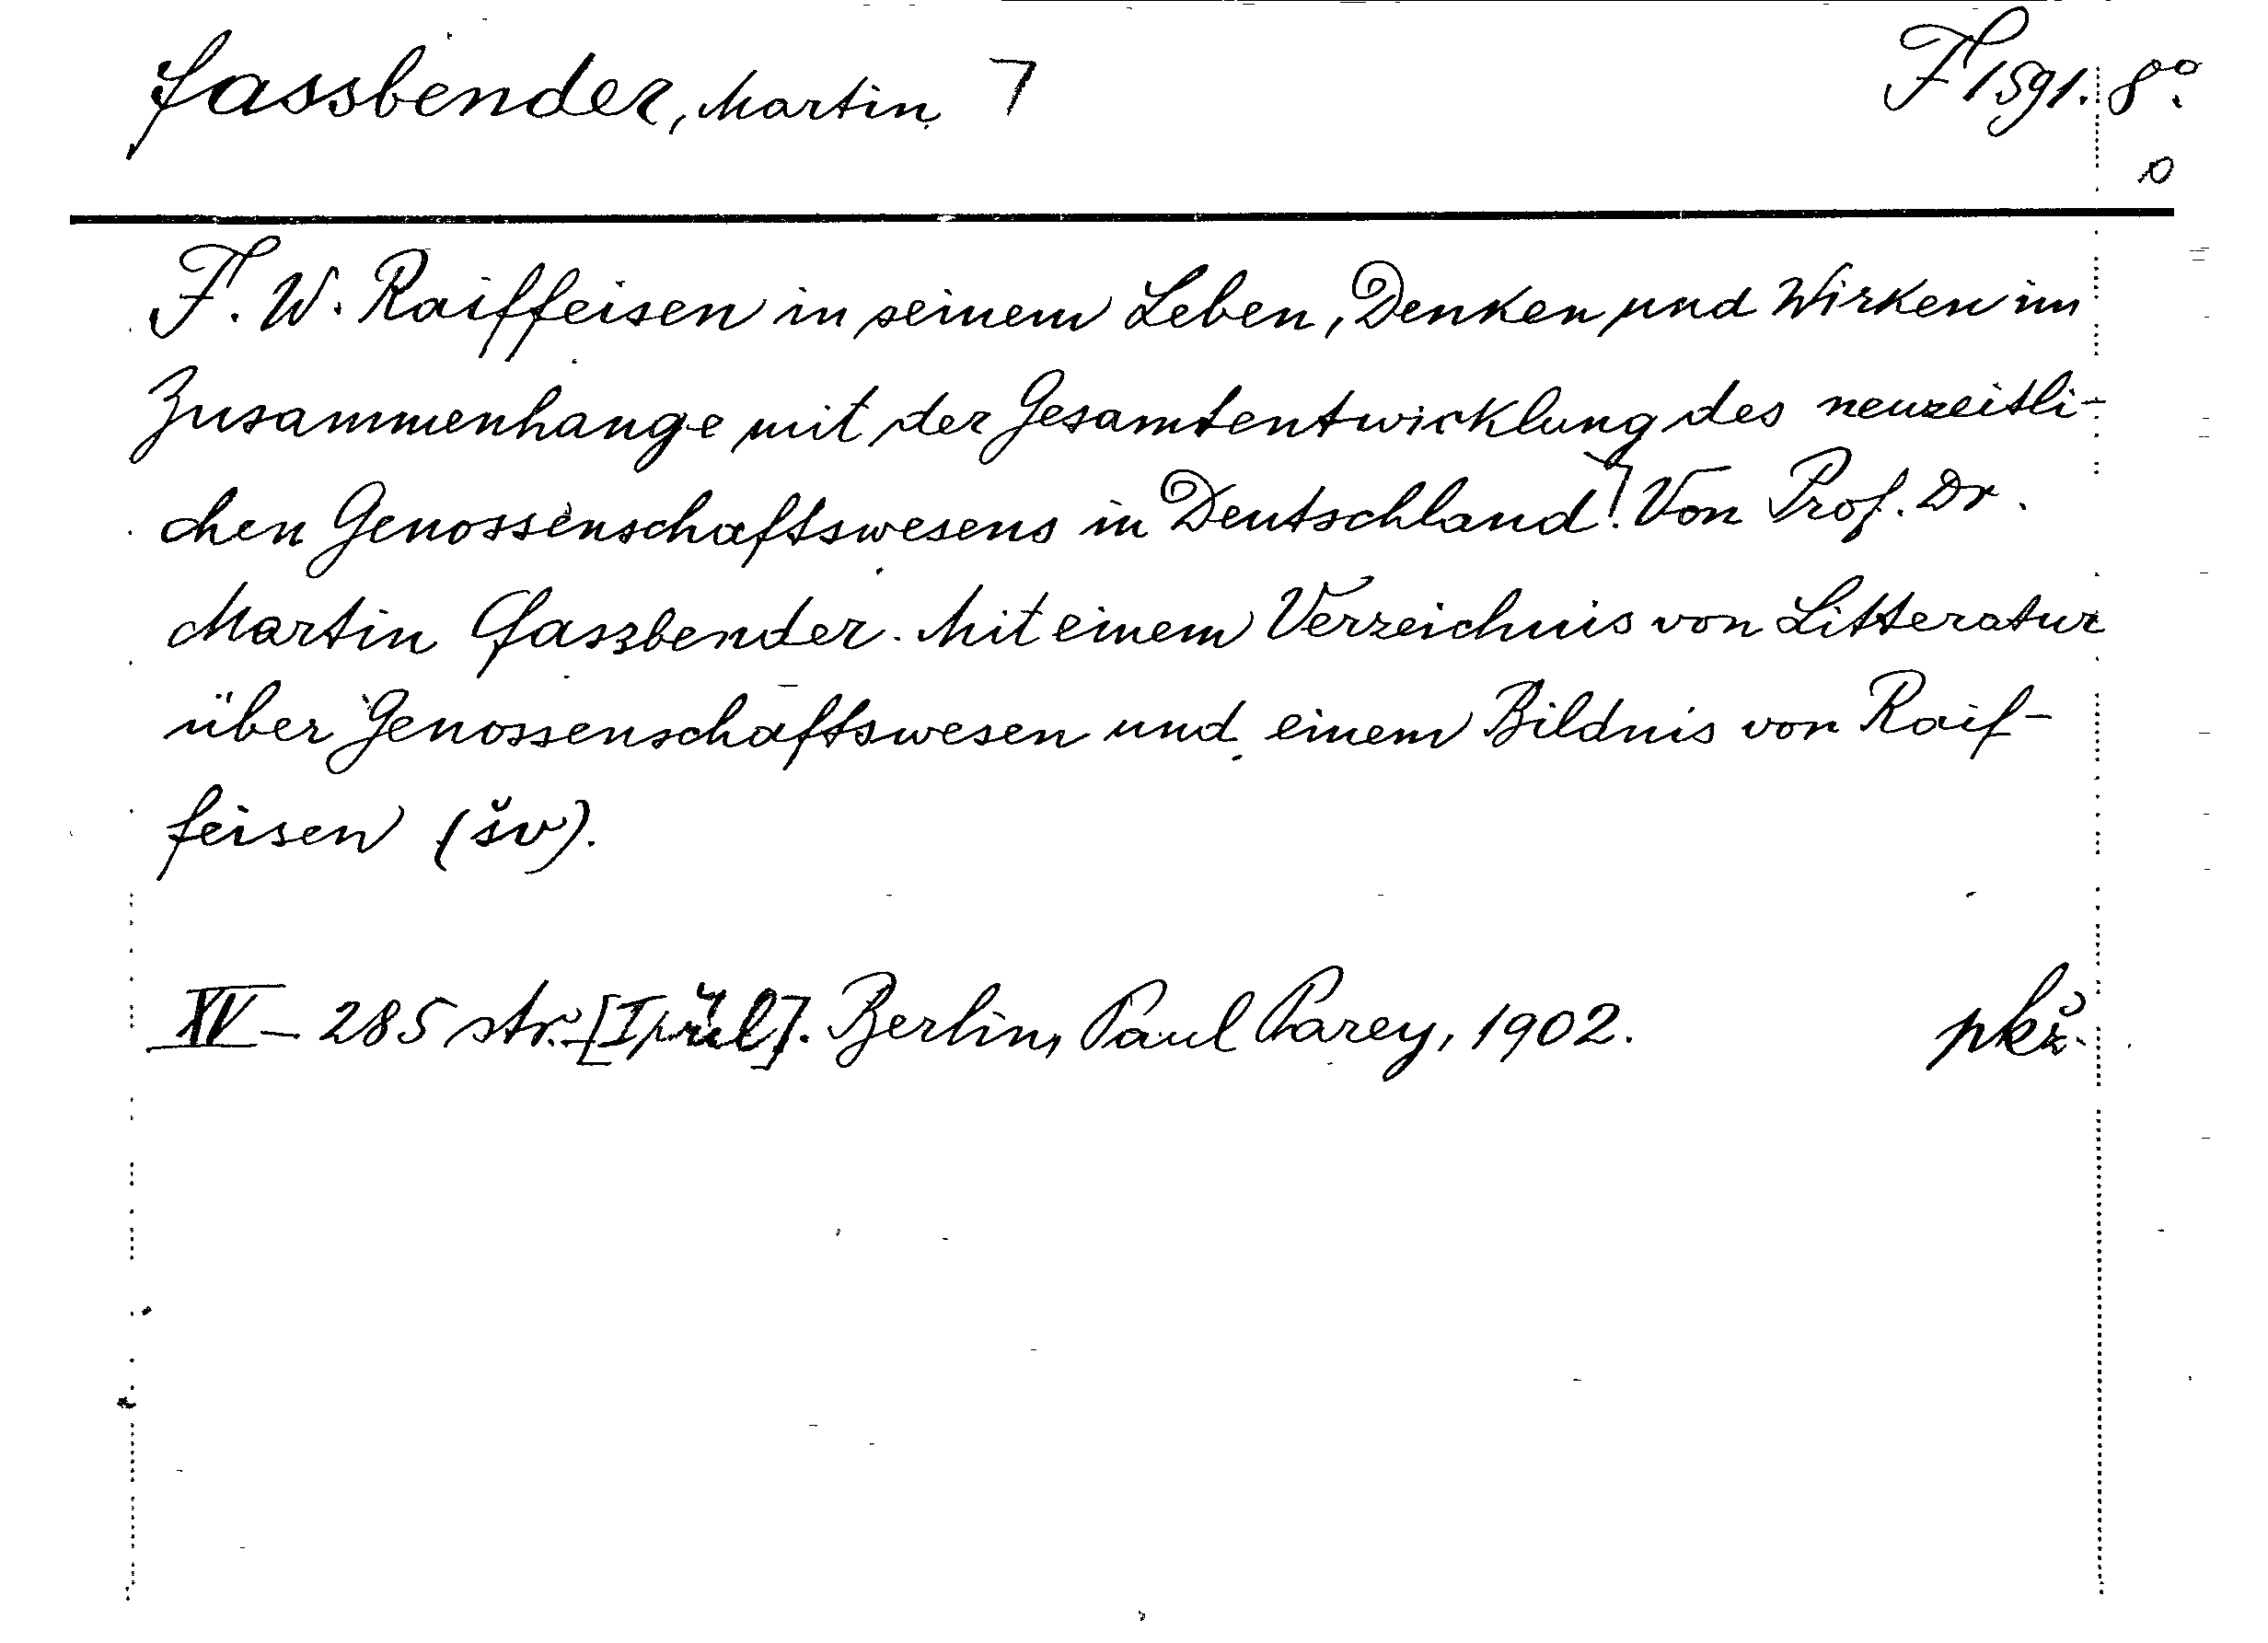 Fassbender, Martin ⌝ F 1591. 8º.
o
F. W. Raiffeisen in seinem Leben, Denken und Wirken im
Zusammenhange mit der Gesamtentwicklung des neuzeitli-
chen Genossenschaftswesens in Deutschland⌝. Von Prof. Dr.
Martin Faszbender. Mit einem Verzeichnis von Litteratur
über Genossenschaftswesen und einem Bildnis von Raif-
feisen (šv).
XV - 285 str. - [I příl]. Berlin, Paul Parey, 1902.